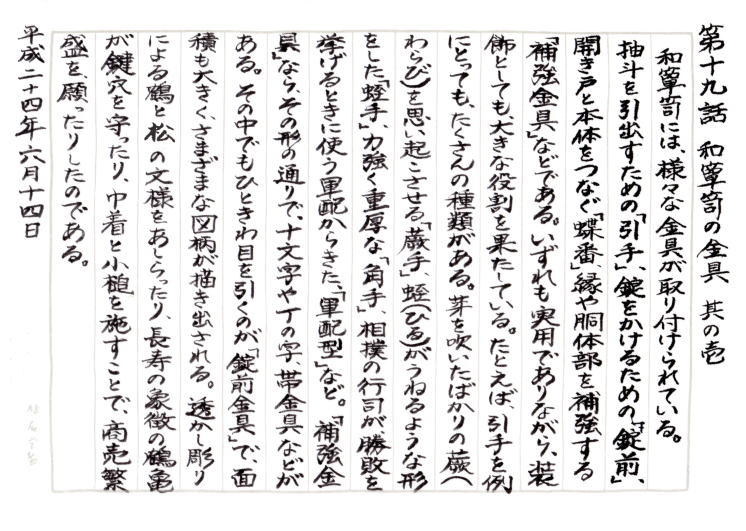 第十九話 和箪笥の金具 其の壱
和箪笥には、様々な金具が取り付けられている。
抽斗を引出すための「引手」、錠をかけるための「錠前」、
開き戸と本体をつなぐ「蝶番」縁や胴体部を補強する
「補強金具」などである。いずれも実用でありながら、装
飾としても、大きな役割を果たしている。たとえば、引手を例
にとっても、たくさんの種類がある。芽を吹いたばかりの蕨(
わらび)を思い起こさせる「蕨手」、蛭(ひる)がうねるような形
をした「蛭手」、力強く重厚な「角手」、相撲の行司が勝敗を
挙げるときに使う軍配からきた、「軍配型」など。「補強金
具」なら、その形の通りで、十文字や丁の字、帯金具などが
ある。その中でもひときわ目を引くのが「錠前金具」で、面
積も大きく、さまざまな図柄が描き出される。透かし彫り
による鶴と松の文様をあしらったり、長寿の象徴の鶴亀
が鍵穴を守ったり、巾着と小槌を施すことで、商売繁
盛を、願ったりしたのである。
平成二十四年六月十四日